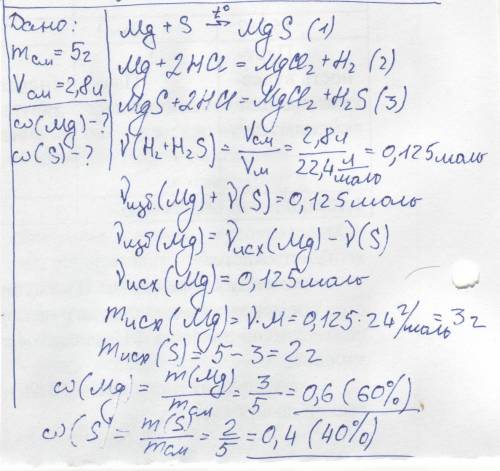 Дано:
mсм = 5г
Vсм = 2,8л
ω(Mg) - ?
ω(S) - ?
Mg + S t° → MgS (1)
Mg + 2HCl = MgCl₂ + H₂ (2)
MgS + 2HCl = MgCl₂ + H₂S (3)
ν(H₂ + H₂S) = Vсм/Vм = 2,8л/22,4 л/моль = 0,125моль
νизб(Mg) + ν(S) = 0,125моль
νизб(Mg) = νисх(Mg) - ν(S)
νисх(Mg) = 0,125моль
mисх(Mg) = ν·M = 0,125·24 г/моль = 3г
mисх(S) = 5 - 3 = 2г
ω(Mg) = m(Mg)/mсм = 3/5 = 0,6 (60%)
ω(S) = m(S)/mсм = 2/5 = 0,4 (40%)